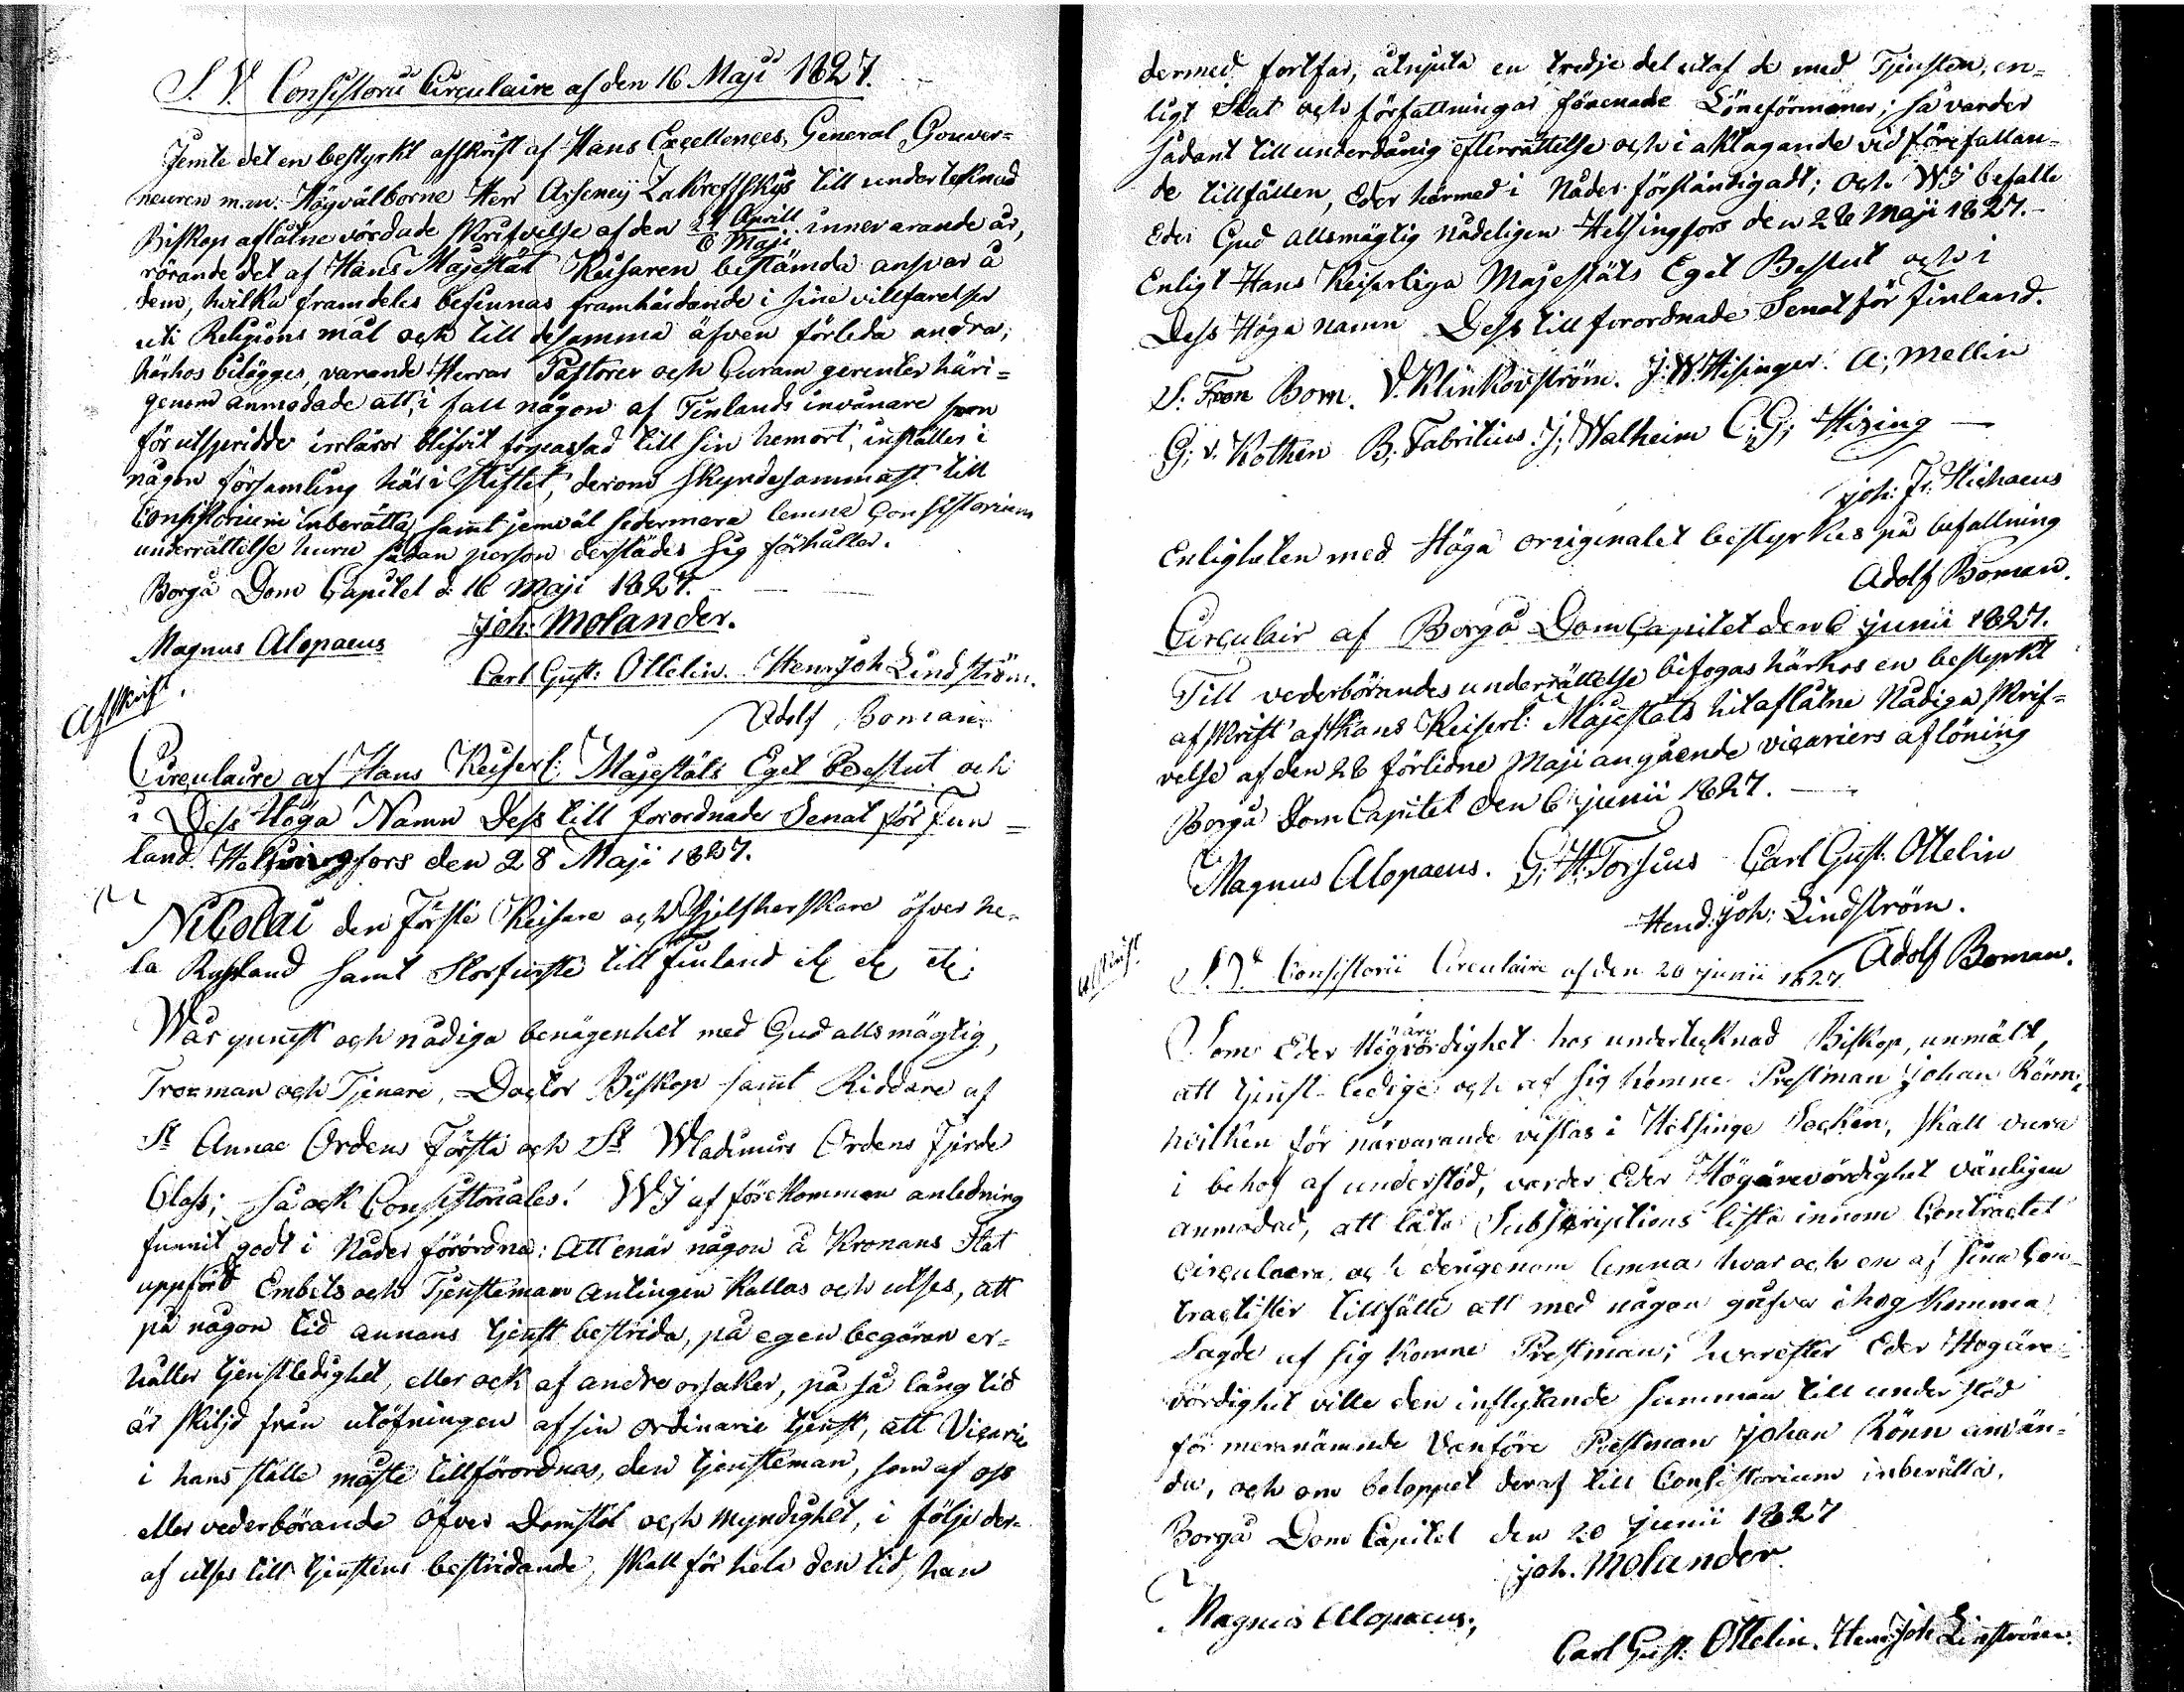 S. V. Consistorii Circulaire af den 16 Maji 1827.
Jemte det en bestyrkt afskrift af Hans Excellences, General Gouver=
neuren m.m. Högvälborne Herr Arseneij Zakreffskijs till undertecknad
Biskop aflåtne vördade skrifvelse af den 24 Aprill / 6 Maji innevarande år,
rörande det af Hans Majestät Keisaren bestämda ansvar å
dem, hvilka framdeles befinnas framhärdande i sine villfarelser
uti Religions mål och till desamma äfven förleda andra,
härhos bilägges, varande Herrar Pastorer och Curam gerenter häri=
genom anmodade att, i fall någon af Finlands invånare som
för utspridde irrläror blifvit förpassad till sin hemort, inställer i
någon församling här i Stiftet, derom skyndesammast till
Consistorium inberätta, samt jemväl sedermera lemna Consistorium
underrättelse huru sådan person derstädes sig förhåller.
Borgå Dom Capitel d. 16 Maji 1827.
Joh. Molander.
Magnus Alopaeus
Carl Gust: Ottelin. Henr Joh Lindström.
Adolf Boman.
Afskrift.
Circulaire af Hans Keiserl: Majestäts Eget Beslut och
i Dess Höga Namn Dess till förordnade Senat för Fin=
land. Helsingfors den 28 Maji 1827.
Nicolai den Förste Keisare och Sjelfherskare öfver he=
la Ryssland samt Storfurste till Finland etc etc etc.
Wår ynnest och nådiga benägenhet med Gud allsmägtig,
Troman och Tjenare, Doctor Biskop samt Riddare af
St Annae Ordens Första och St Wladimirs Ordens Fjerde
Class; så ock Consistoriales! WJ af förekommen anledning
funnit godt i Nåder förordna: Att enär någon å Kronans Stat
uppförd Embets och Tjensteman antingen kallas och utses, att
på någon tid annans tjenst bestrida, på egen begäran er=
håller tjenstledighet, eller ock af andre orsaker, på så lång tid
är skiljd från utöfningen af sin ordinarie tjenst, att Vicarie
i hans ställe måste tillförordnas, den tjensteman, som af oss
eller vederbörande Öfver Domstol och Myndighet, i följe der=
af utses till tjenstens bestridande, skall för hela den tid, han
dermed fortfar, åtnjuta en tredje del utaf de med Tjensten, en=
ligt Stat och författningar förenade Löneförmåner; så varder
sådant till underdånig efterrättelse och i akttagande vid förefallan=
de tillfällen, Eder härmed i Nåder förständigadt; Och WJ befalle
Eder Gud allsmägtig nådeligen Helsingfors den 28 Maji 1827.
Enligt Hans Keiserliga Majestäts Eget Beslut och i
Dess Höga namn Dess till förordnade Senat för Finland.
S. F von Born. V. Klinkovström. J. W. Hisinger. A. Mellin
G. v. Kothen B. Fabritius. J. Walheim C. G. Hising
Joh: Fr: Hichaeus
Enligheten med Höga originalet bestyrkes på befallning
Adolf Boman.
Circulair af Borgå Dom Capitel den 6 Junii 1827.
Till vederbörandes underrättelse bifogas härhos en bestyrkt
afskrift af Hans Keiserl: Majestäts hitaflåtne Nådiga skrif=
velse af den 28 förlidne Maji angående vicariers aflöning
Borgå Dom Capitel den 6 Junii 1827.
Magnus Alopaeus. G. H. Forsius Carl Gust. Ottelin
Hend: Joh: Lindström.
Adolf Boman.
Afskrift.
S. V. Consistorii Circulaire af den 20 Junii 1827.
Som Eder Högärevördighet hos undertecknad Biskop, anmält,
att tjenst ledige och af sig komne Prestman Johan Rönn,
hvilken för närvarande vistas i Helsinge Socken, skall vara
i behof af understöd, varder Eder Högärevördighet vänligen
anmodad, att låta Subscriptions lista innom Contractet
circulera, och derigenom lemna hvar och en af sina Con=
tractister tillfälle att med någon gåfva i hog komma
Sagde af sig komne Prestman; hvarefter Eder Högäre=
vördighet ville den inflytande summan till understöd
för mernämnde vanföre Prestman Johan Rönn använ=
da, och om beloppet deraf till Consistorium inberätta.
Borgå Dom Capitel den 20 Junii 1827
Joh. Molander.
Magnus Alopaeus,
Carl Gust. Ottelin. Henr Joh Linström.